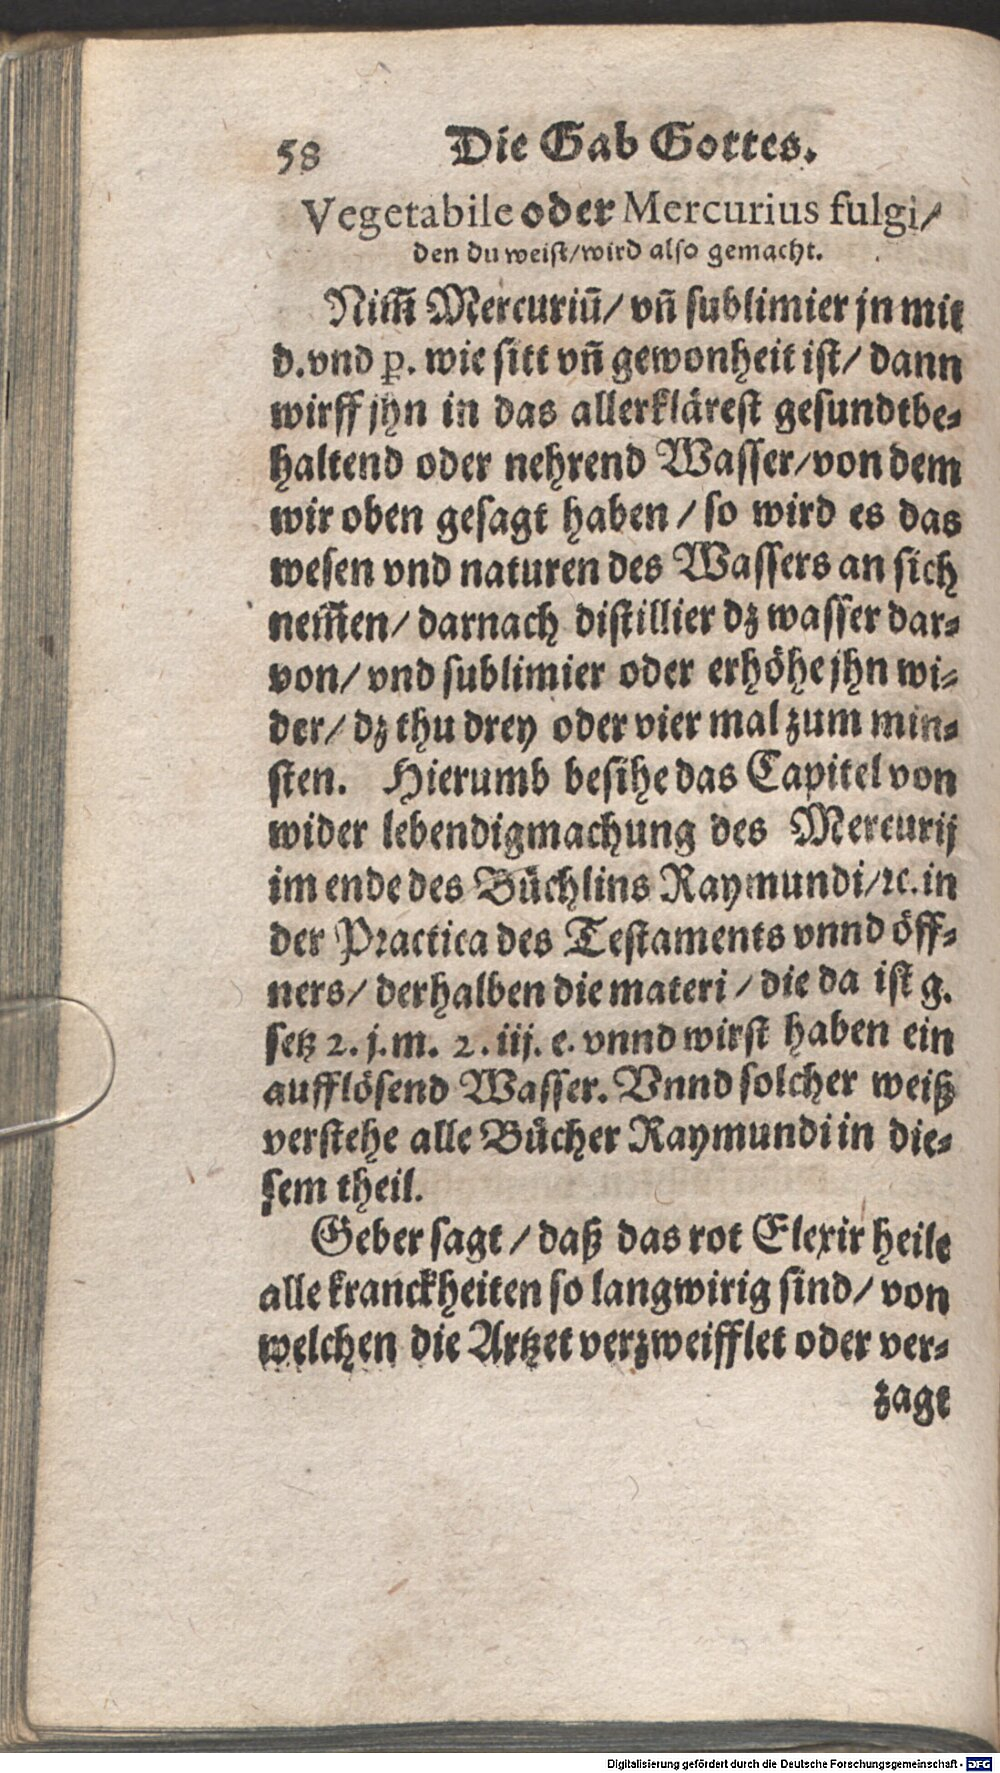 58 Die Gab Gottes.
Vegetabile oder Mercurius fulgi/
den du weist/wird also gemacht.
Nim̃ Mercuriũ/ vñ sublimier jn mit
d. vnd ꝑ. wie sitt vñ gewonheit ist/ dann
wirff jhn in das allerklärest gesundtbe-
haltend oder nehrend Wasser/von dem
wir oben gesagt haben / so wird es das
wesen vnd naturen des Wassers an sich
nem̃en/ darnach distillier dz wasser dar-
von/ vnd sublimier oder erhöhe jhn wi-
der/ dz thu drey oder vier mal zum min-
sten. Hierumb besihe das Capitel von
wider lebendigmachung des Mercurij
im ende des Büchlins Raymundi/ꝛc. in
der Practica des Testaments vnnd öff-
ners/ derhalben die materi / die da ist g.
setz 2. j. m. 2. iij. e. vnnd wirst haben ein
aufflösend Wasser. Vnnd solcher weiß
verstehe alle Bücher Raymundi in die-
sem theil.
Geber sagt / daß das rot Elexir heile
alle kranckheiten so langwirig sind/ von
welchen die Artzet verzweifflet oder ver-
zagt
Digitalisierung gefördert durch die Deutsche Forschungsgemeinschaft - DFG